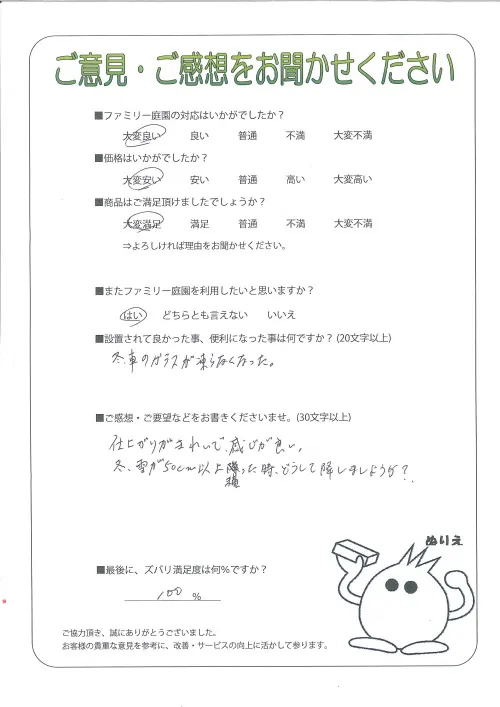 ご意見・ご感想をお聞かせください
■ファミリー庭園の対応はいかがでしたか？
大変良い 良い 普通 不満 大変不満
■価格はいかがでしたか？
大変安い 安い 普通 高い 大変高い
■商品はご満足頂けましたでしょうか？
大変満足 満足 普通 不満 大変不満
⇒よろしければ理由をお聞かせください。
■またファミリー庭園を利用したいと思いますか？
はい どちらとも言えない いいえ
■設置されて良かった事、便利になった事は何ですか？(20文字以上)
冬、車のガラスが凍らなくなった。
■ご感想・ご要望などをお書きくださいませ。(30文字以上)
仕上がりがきれいで、感じが良い。
冬、雪が50cm以上降った時、どうして降しましようか？
ぬりえ
■最後に、ズバリ満足度は何%ですか？
100 %
ご協力頂き、誠にありがとうございました。
お客様の貴重な意見を参考に、改善・サービスの向上に活かして参ります。